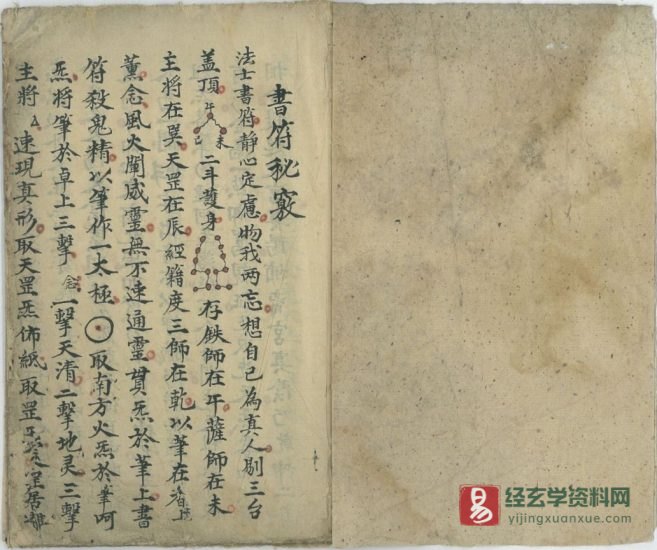 書符秘竅
法士書符靜心定慮物我两忘想自己為真人剔三台
盖頂午巳未二斗護身存鉄師在午薩師在未
主將在巽天罡在辰經籍度三師在乾以筆在香上
薰念風火闡威靈無不速通靈貫炁於筆上書
符殺鬼精以筆作一太極取南方火炁於筆呵
炁將筆於卓上三擊念一擊天清二擊地灵三擊
主將厶速現真形取天罡炁佈紙取罡炁
易
经玄学资料网
yijingxuanxue.com